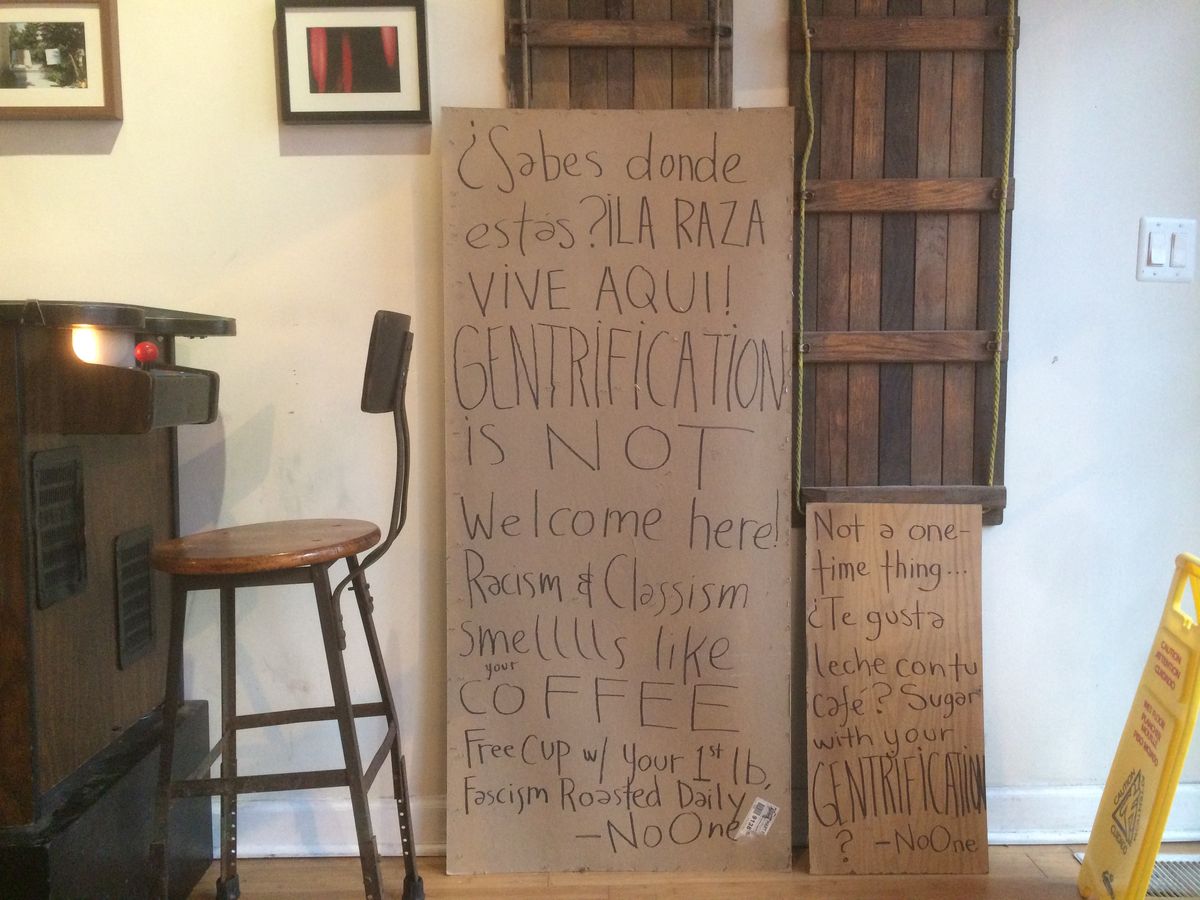 ¿Sabes donde
estás? ¡LA RAZA
VIVE AQUI!
GENTRIFICATION
is NOT
Welcome here!
Racism & Classism
smellllls like
your
COFFEE
Free Cup w/ your 1st lb.
Fascism Roasted Daily
-NoOne
Not a one-
time thing...
¿Te gusta
leche con tu
café? Sugar
with your
GENTRIFICATION
? -NoOne
CAUTION
CUIDADO
WET FLOOR
PISO MOJADO
CAUTION